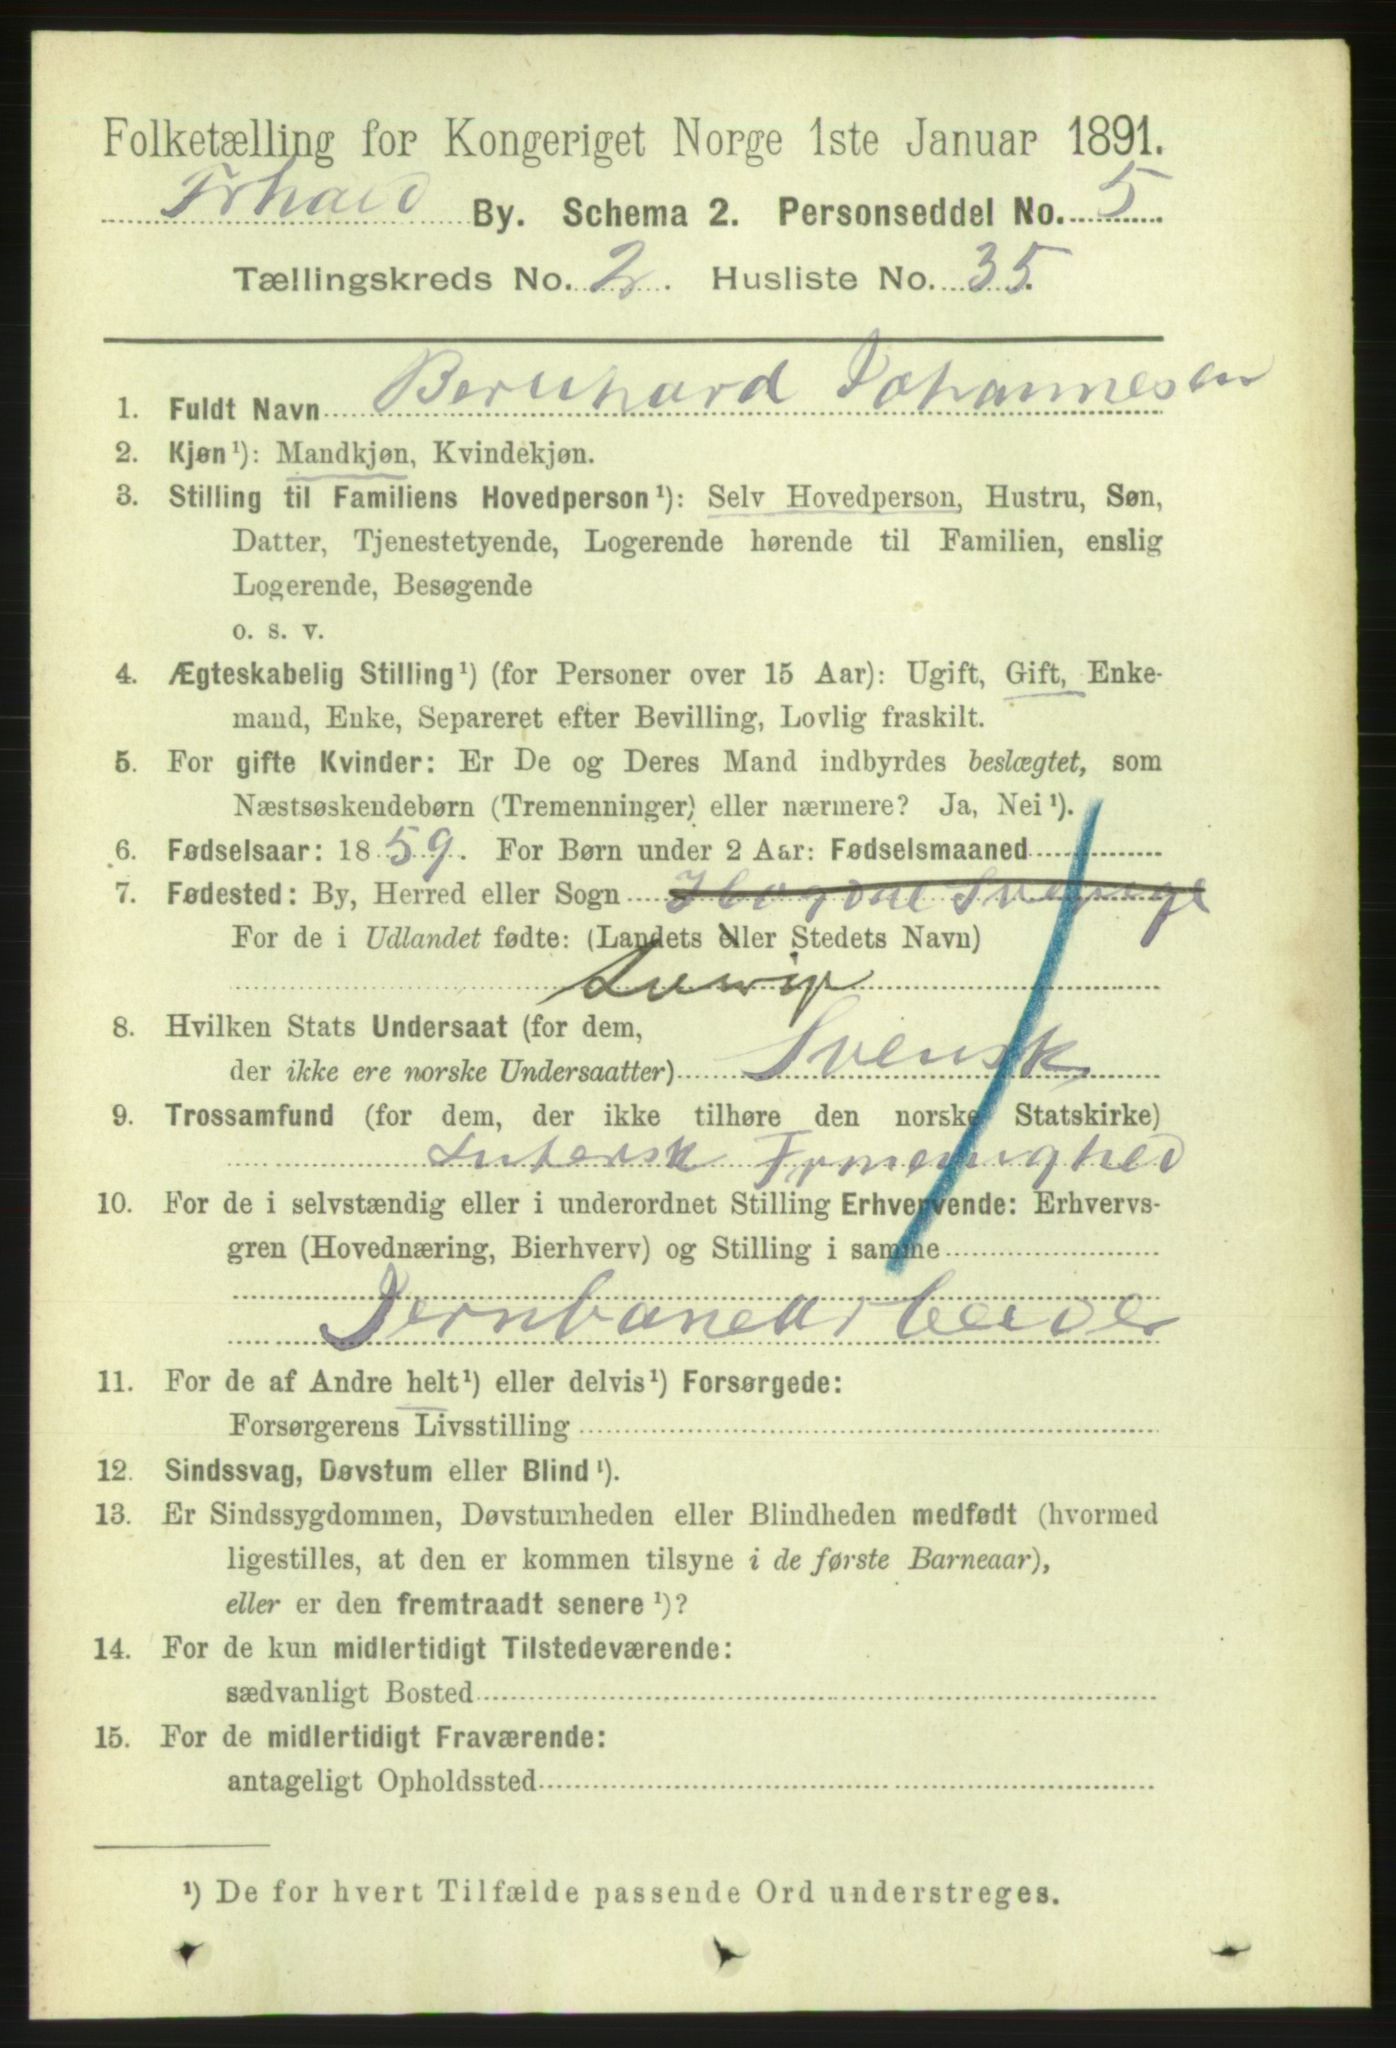 Folketælling for Kongeriget Norge 1ste Januar 1891.
Frhald By. Schema 2. Personseddel No. 5.
Tællingskreds No. 2. Husliste No. 35.
1. Fuldt Navn Bernhard Johannesen
2. Kjøn¹): Mandkjøn, Kvindekjøn.
3. Stilling til Familiens Hovedperson¹): Selv Hovedperson, Hustru, Søn,
Datter, Tjenestetyende, Logerende hørende til Familien, enslig
Logerende, Besøgende
o. s. v.
4. Ægteskabelig Stilling¹) (for Personer over 15 Aar): Ugift, Gift, Enke-
mand, Enke, Separeret efter Bevilling, Lovlig fraskilt.
5. For gifte Kvinder: Er De og Deres Mand indbyrdes beslægtet, som
Næstsøskendebørn (Tremenninger) eller nærmere? Ja, Nei¹).
6. Fødselsaar: 1859. For Børn under 2 Aar: Fødselsmaaned
7. Fødested: By, Herred eller Sogn Hogdal Sverige
For de i Udlandet fødte: (Landets eller Stedets Navn)
8. Hvilken Stats Undersaat (for dem,
der ikke ere norske Undersaatter) Svensk
9. Trossamfund (for dem, der ikke tilhøre den norske Statskirke)
Lutersk
10. For de i selvstændig eller i underordnet Stilling Erhvervende: Erhvervs-
gren (Hovednæring, Bierhverv) og Stilling i samme
Jernbanearbeider
11. For de af Andre helt¹) eller delvis¹) Forsørgede:
Forsørgerens Livsstilling
12. Sindssvag, Døvstum eller Blind¹).
13. Er Sindssygdommen, Døvstumheden eller Blindheden medfødt (hvormed
ligestilles, at den er kommen tilsyne i de første Barneaar),
eller er den fremtraadt senere¹)?
14. For de kun midlertidigt Tilstedeværende:
sædvanligt Bosted
15. For de midlertidigt Fraværende:
antageligt Opholdssted
¹) De for hvert Tilfælde passende Ord understreges.